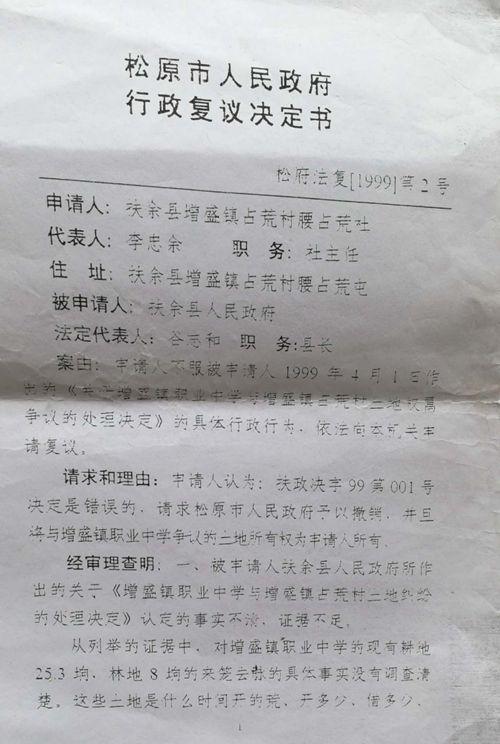 松原市人民政府
行政复议决定书
松府法复[1999]第2号
申请人：扶余县增盛镇占荒村腰占荒社
代表人：李忠余 职务：社主任
住址：扶余县增盛镇占荒村腰占荒屯
被申请人：扶余县人民政府
法定代表人：谷志和 职务：县长
案由：申请人不服被申请人1999年4月1日作
出的《关于增盛镇职业中学与增盛镇占荒村土地权属
争议的处理决定》的具体行政行为，依法向本机关申
请复议。
请求和理由：申请人认为：扶政决字99第001号
决定是错误的，请求松原市人民政府予以撤销，并且
将与增盛镇职业中学争议的土地所有权为申请人所有。
经审理查明：一、被申请人扶余县人民政府所作
出的关于《增盛镇职业中学与增盛镇占荒村土地纠纷
的处理决定》认定的事实不清，证据不足。
从列举的证据中，对增盛镇职业中学的现有耕地
25.3垧，林地8垧的来笼去脉的具体事实没有调查清
楚。这些土地是什么时间开的荒、开多少、借多少、
1